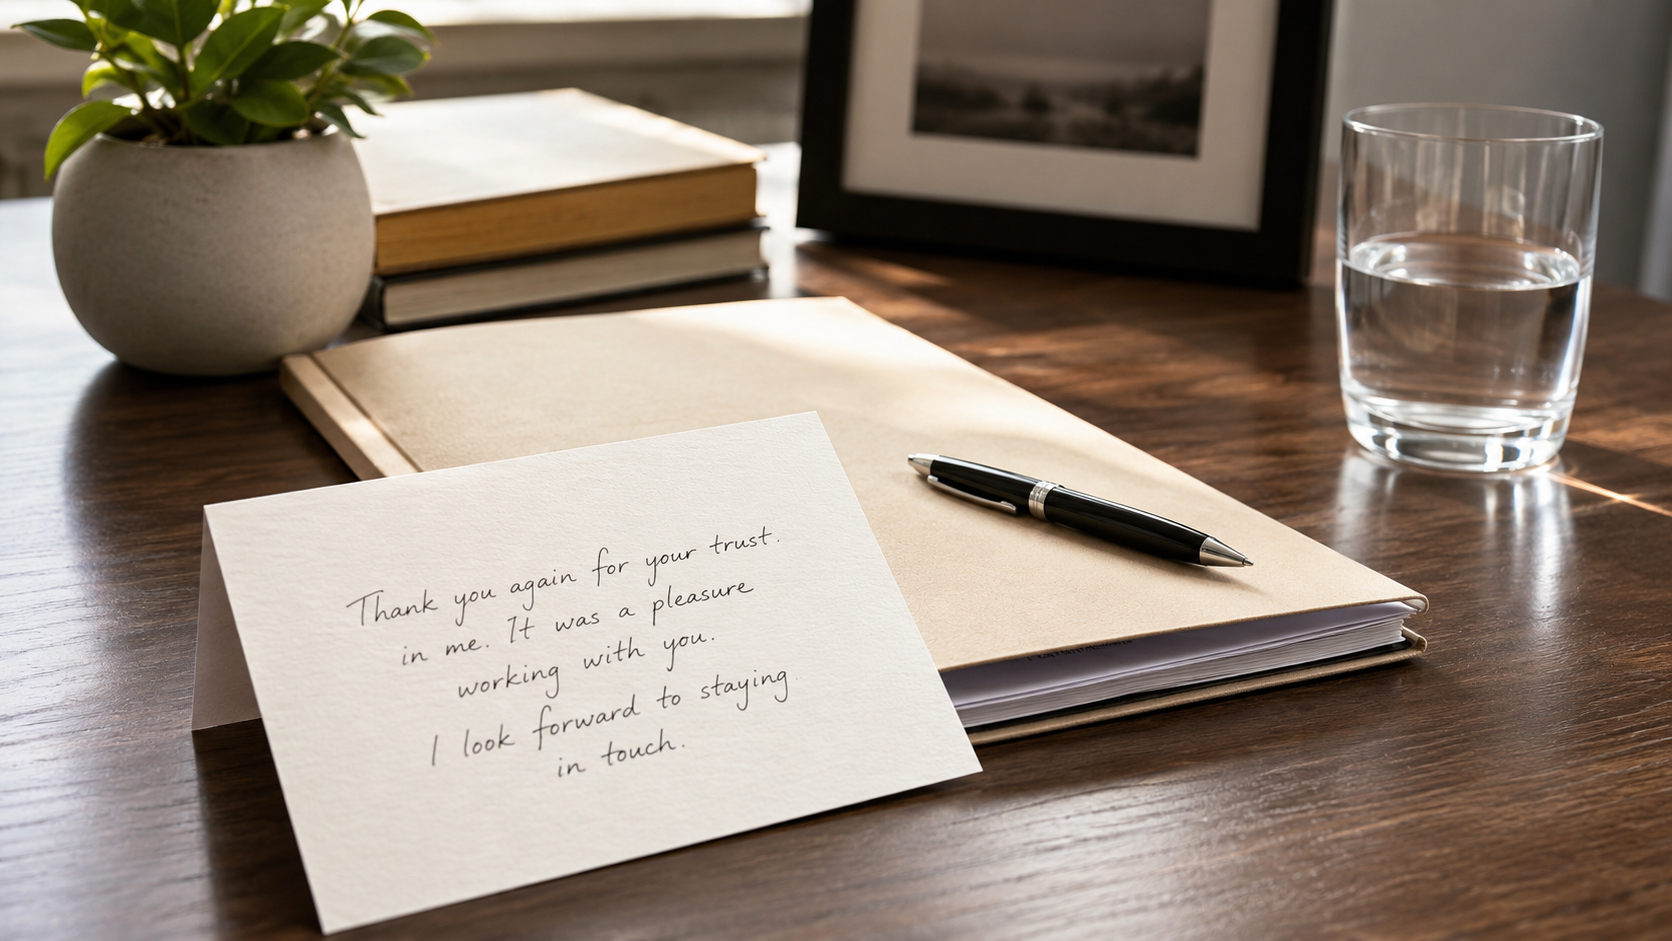 Thank you again for your trust.
in me. It was a pleasure
working with you.
I look forward to staying
in touch.